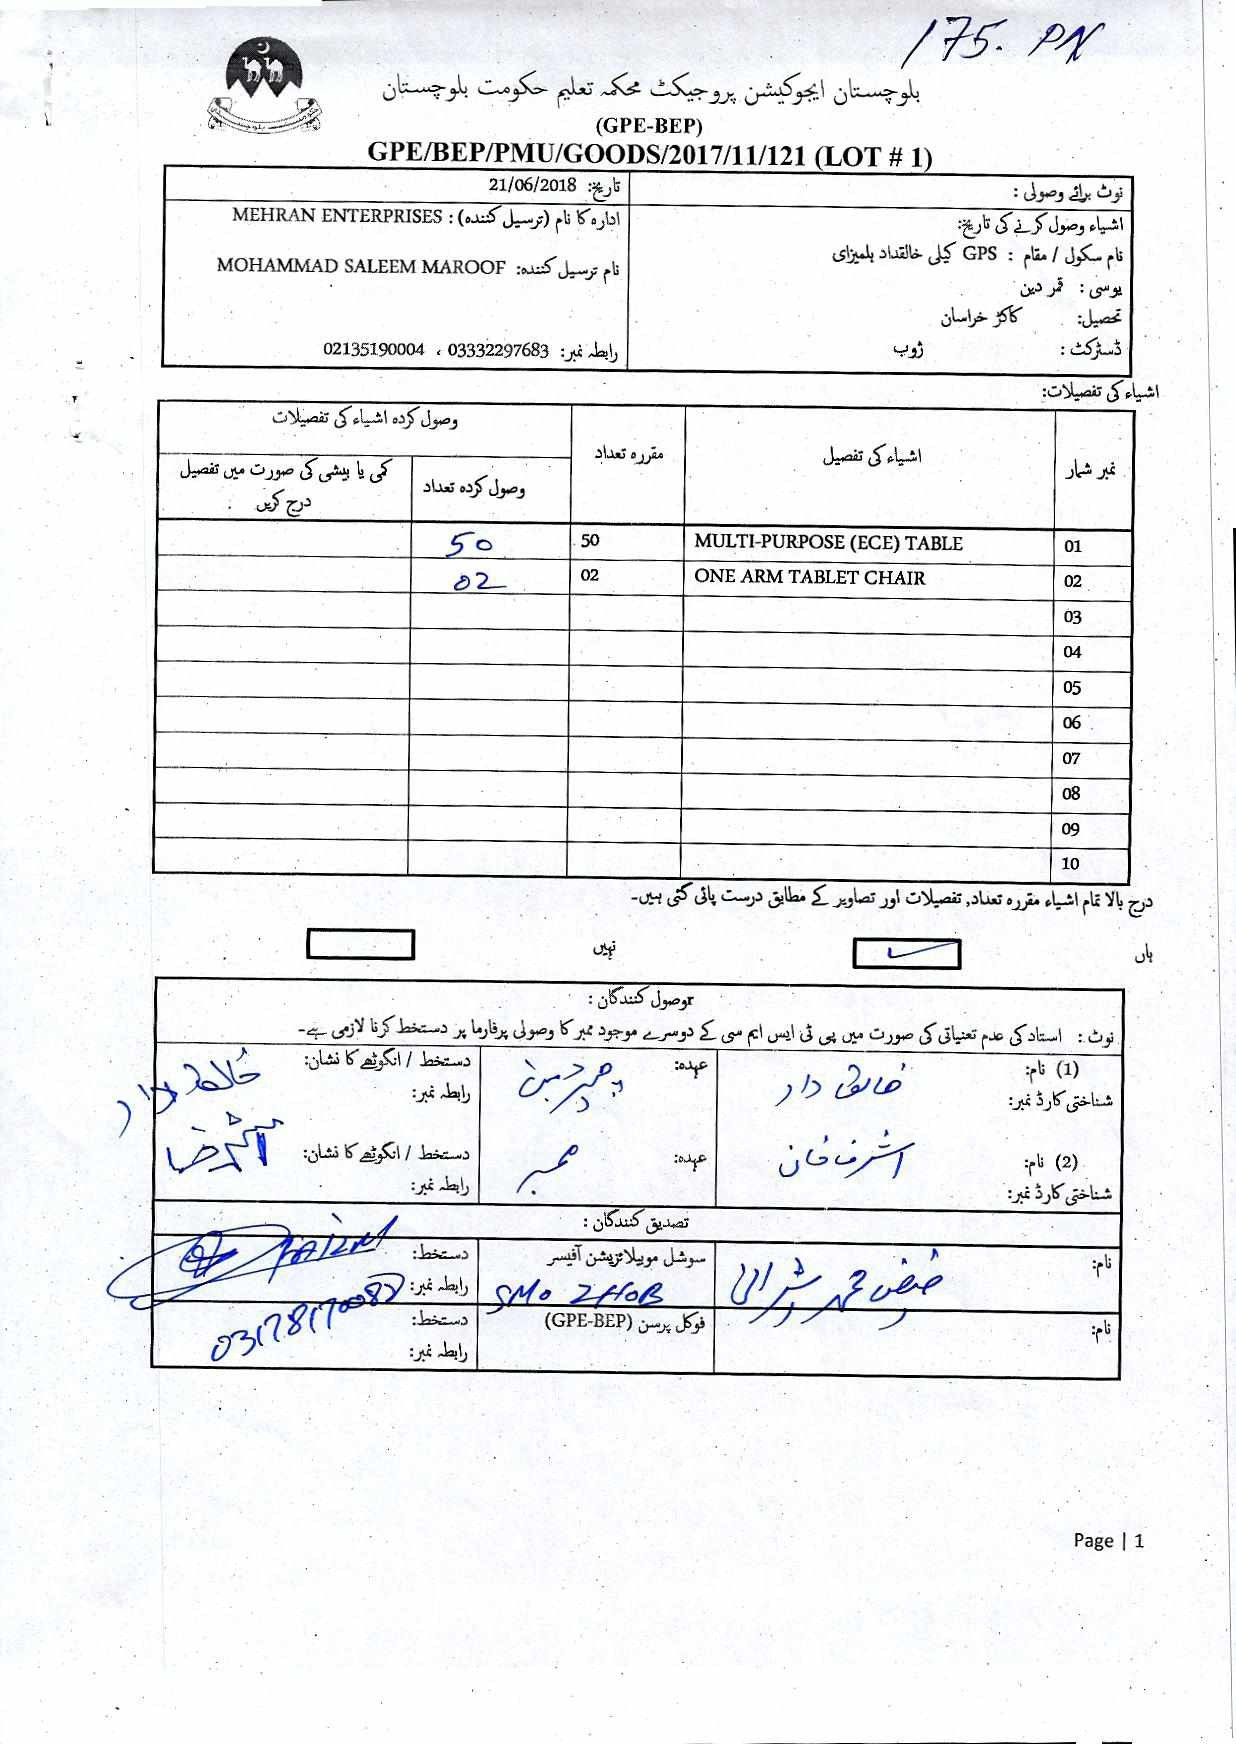 175. PN
بلوچستان ایجوکیشن پروجیکٹ محکمہ تعلیم حکومت بلوچستان
(GPE-BEP)
GPE/BEP/PMU/GOODS/2017/11/121 (LOT # 1)
نوٹ برائے وصولی :
تاریخ: 21/06/2018
اشیاء وصول کرنے کی تاریخ:
نام سکول / مقام : GPS کیلی خالقداد بلمیزای
یوسی : قمر دین
تحصیل: کاکڑ خراسان
ڈسٹرکٹ : ژوب
ادارہ کا نام (ترسیل کنندہ) : MEHRAN ENTERPRISES
نام ترسیل کنندہ: MOHAMMAD SALEEM MAROOF
رابطہ نمبر: 03332297683 ، 02135190004
اشیاء کی تفصیلات:
نمبر شمار اشیاء کی تفصیل مقررہ تعداد وصول کردہ اشیاء کی تفصیلات
وصول کردہ تعداد کمی یا بیشی کی صورت میں تفصیل درج کریں .
01 MULTI-PURPOSE (ECE) TABLE 50 50
02 ONE ARM TABLET CHAIR 02 02
03
04
05
06
07
08
09
10
درج بالا تمام اشیاء مقررہ تعداد, تفصیلات اور تصاویر کے مطابق درست پائی گئی ہیں۔
ہاں نہیں
وصول کنندگان :
نوٹ : استاد کی عدم تعنیاتی کی صورت میں پی ٹی ایس ایم سی کے دوسرے موجود ممبر کا وصولی پرفارما پر دستخط کرنا لازمی ہے۔
(1) نام: خالق داد عہدہ: چیرمین دستخط / انگوٹھے کا نشان:
شناختی کارڈ نمبر: رابطہ نمبر:
(2) نام: اشرف خان عہدہ: ممبر دستخط / انگوٹھے کا نشان:
شناختی کارڈ نمبر: رابطہ نمبر:
تصدیق کنندگان :
نام: فیض محمد سوشل موبیلائزیشن آفیسر دستخط:
SMO ZHOB رابطہ نمبر:
نام: فوکل پرسن (GPE-BEP) دستخط:
رابطہ نمبر:
Page | 1